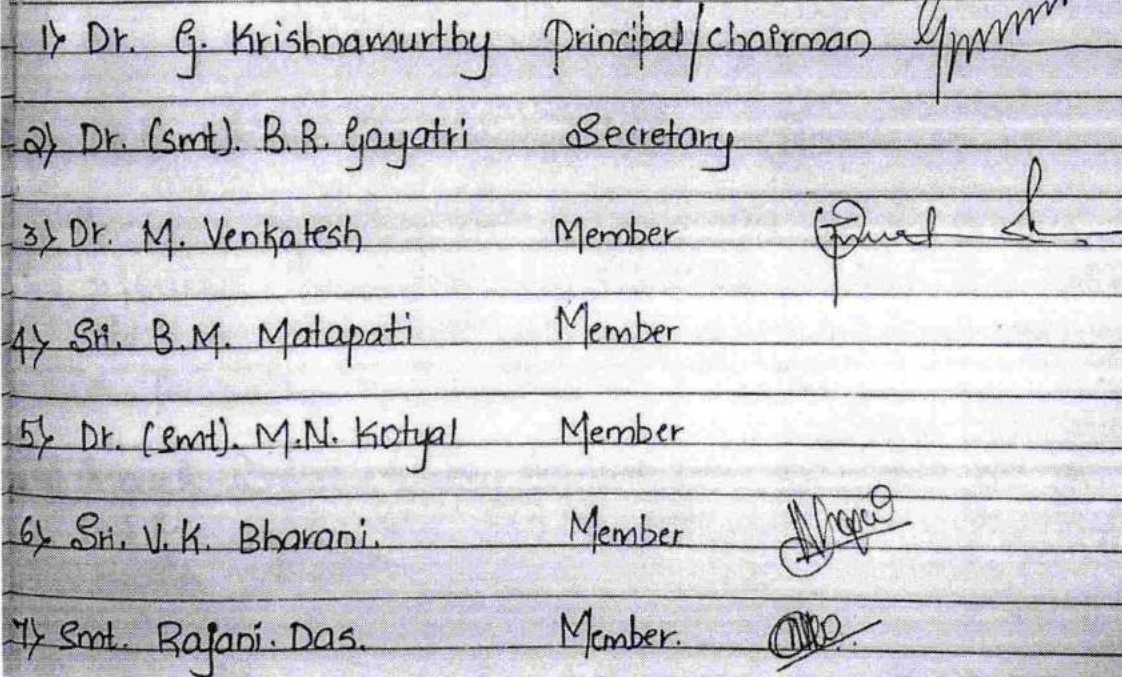 1) Dr. G. Krishnamurthy Principal/Chairman
2) Dr. (Smt). B.R. Gayatri Secretary
3) Dr. M. Venkatesh Member
4) Sri. B.M. Matapati Member
5) Dr. (Smt). M.N. Kotyal Member
6) Sri. V.K. Bharani. Member
7) Smt. Rajani. Das. Member.